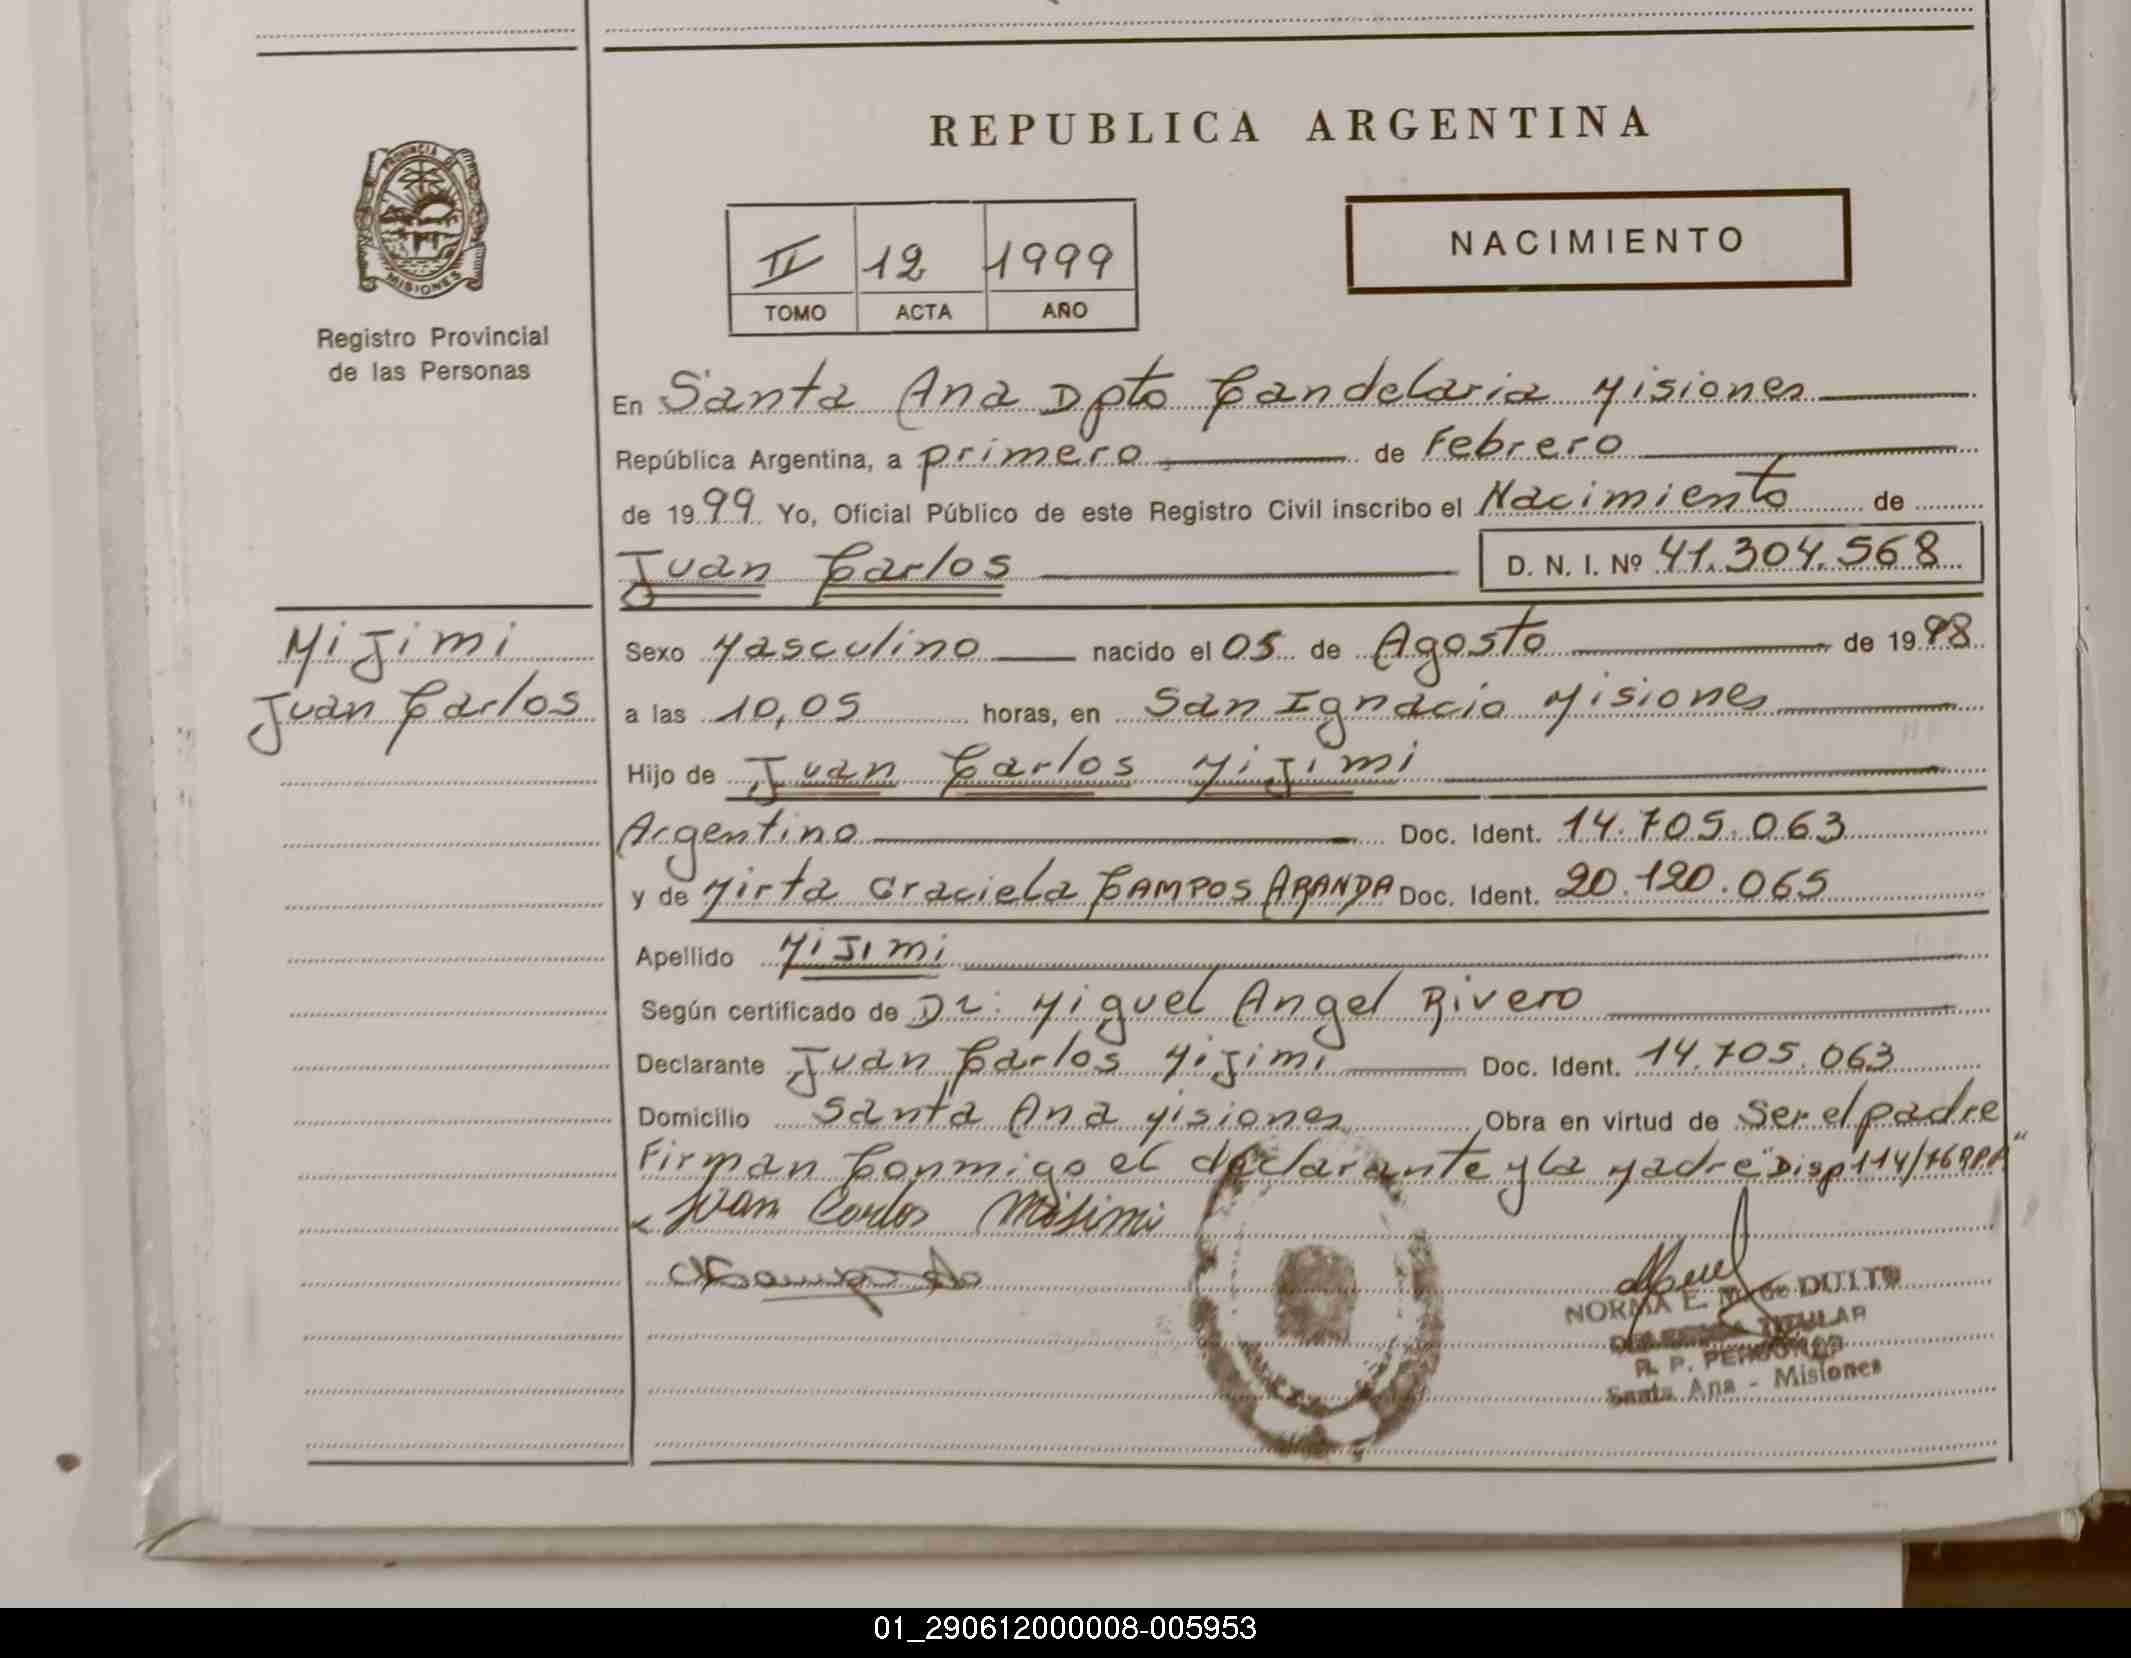 REPUBLICA ARGENTINA
PROVINCIA D
MISIONES
Registro Provincial
de las Personas
II 12 1999
TOMO ACTA AÑO
NACIMIENTO
En Santa Ana Dpto Candelaria Misiones
República Argentina, a primero de Febrero
de 1999 Yo, Oficial Público de este Registro Civil inscribo el Nacimiento de
Juan Carlos D. N. I. Nº 41.304.568
Mijimi
Juan Carlos
Sexo Masculino nacido el 05 de Agosto de 1998
a las 10,05 horas, en San Ignacio Misiones
Hijo de Juan Carlos Mijimi
Argentino Doc. Ident. 14.705.063
y de Mirta Graciela CAMPOS ARANDA Doc. Ident. 20.120.065
Apellido Mijimi
Según certificado de Dr: Miguel Angel Rivero
Declarante Juan Carlos Mijimi Doc. Ident. 14.705.063
Domicilio Santa Ana Misiones Obra en virtud de Ser el padre
Firman Conmigo el declarante y la Madre "Disp 114/76
Juan Carlos Mijimi
NORMA E. M. de DUITO
TITULAR
R. P. PERSONAS
Santa Ana - Misiones
01_290612000008-005953